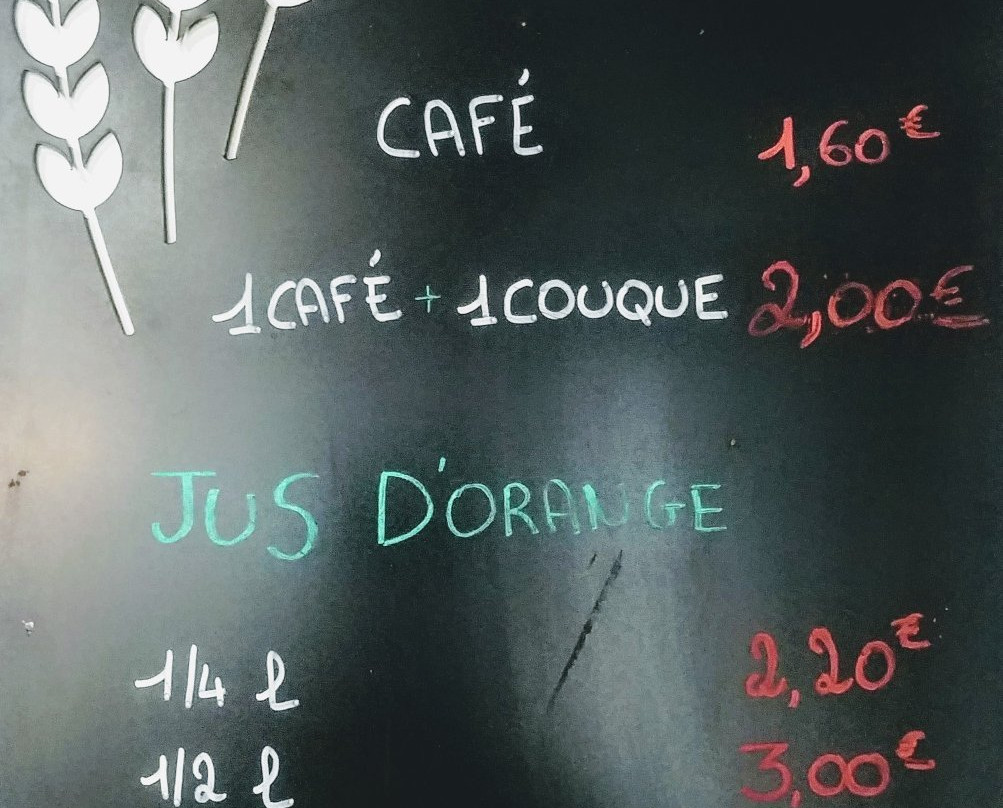 CAFÉ 1,60€
1CAFÉ + 1COUQUE 2,00€
JUS D'ORANGE
1/4 l 2,20€
1/2 l 3,00€